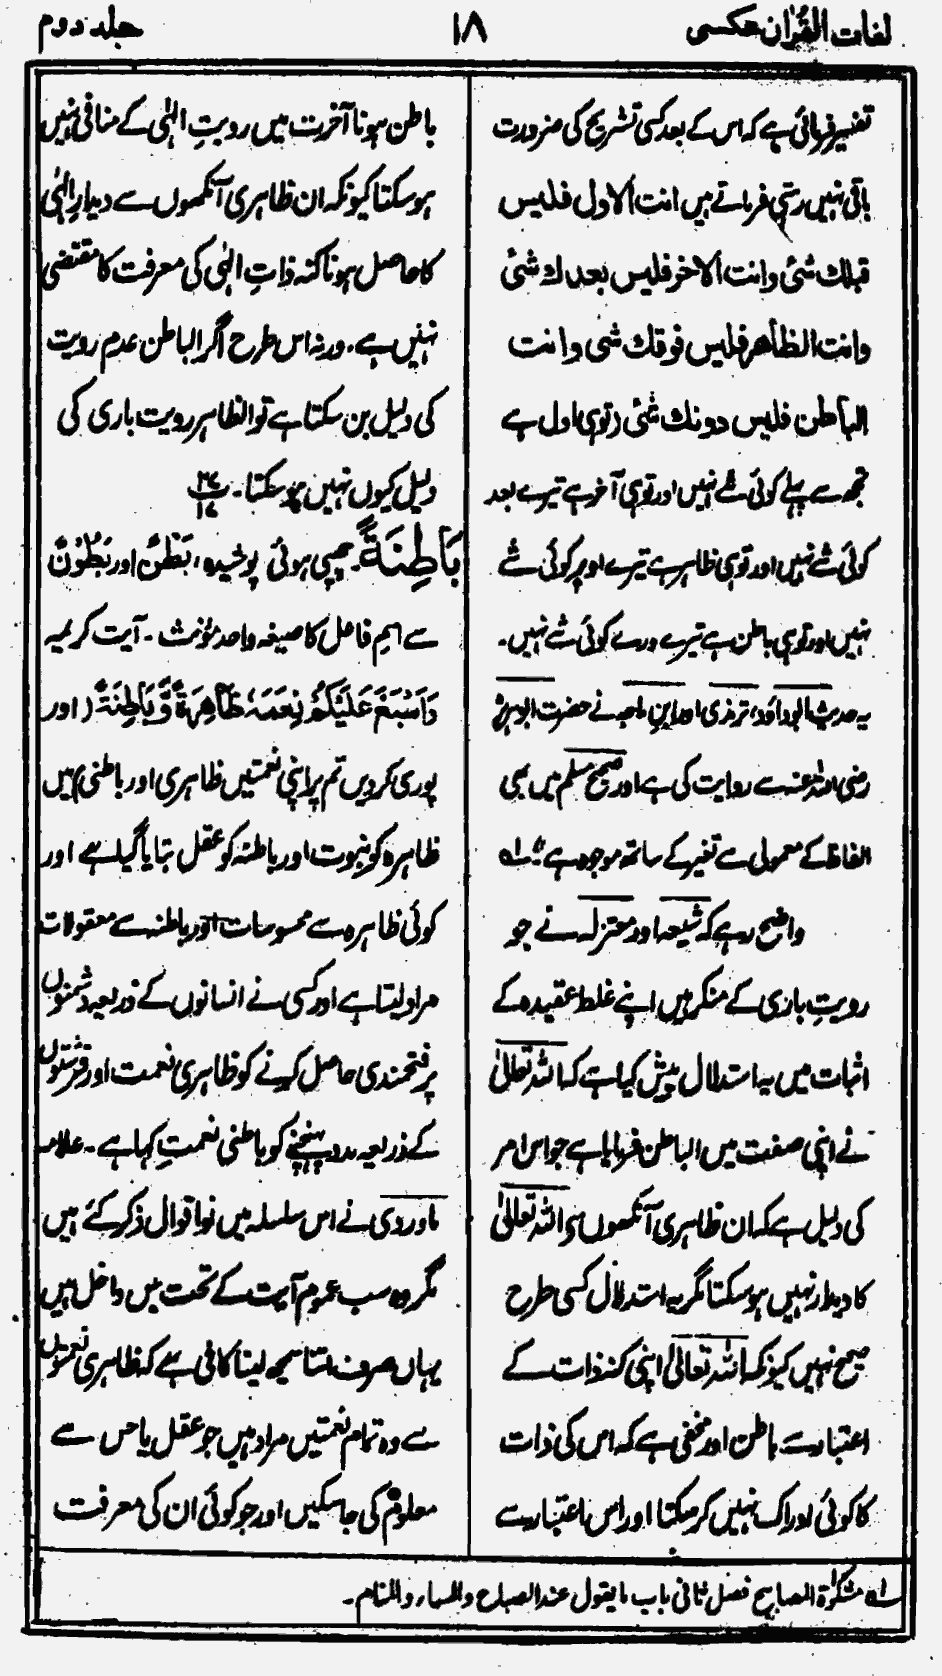 لغات القرآن عکسی
۱۸
جلد دوم
تفسیر فرمائی ہے کہ اس کے بعد کسی تشریح کی ضرورت
باقی نہیں رہتی فرماتے ہیں انت الاول فلیس
قبلك شئ وانت الاخر فلیس بعدك شئ
وانت الظاهر فلیس فوقك شی وانت
الباطن فلیس دونك شئ (توہی اول ہے
تجھ سے پہلے کوئی شے نہیں اور توہی آخر ہے تیرے بعد
کوئی شے نہیں اور توہی ظاہر ہے تیرے اوپر کوئی شے
نہیں اور توہی باطن ہے تیرے ورے کوئی شے نہیں۔
یہ حدیث ابوداؤد، ترمذی اور ابن ماجہ نے حضرت ابوہریرہ
رضی اللہ عنہ سے روایت کی ہے اور صحیح مسلم میں بھی
الفاظ کے معمولی سے تغیر کے ساتھ موجود ہے۔ لہ
واضح رہے کہ شیعہ اور معتزلہ نے جو
رویتِ باری کے منکر ہیں اپنے غلط عقیدہ کے
اثبات میں یہ استدلال پیش کیا ہے کہ اللہ تعالیٰ
نے اپنی صفت میں الباطن فرمایا ہے جو اس امر
کی دلیل ہے کہ ان ظاہری آنکھوں سے اللہ تعالیٰ
کا دیدار نہیں ہوسکتا مگر یہ استدلال کسی طرح
صحیح نہیں کیونکہ اللہ تعالیٰ اپنی کنہ ذات کے
اعتبار سے باطن اور مخفی ہے کہ اس کی ذات
کا کوئی ادراک نہیں کرسکتا اور اس اعتبار سے
باطن ہونا آخرت میں رویتِ الٰہی کے منافی نہیں
ہوسکتا کیونکہ ان ظاہری آنکھوں سے دیدارِ الٰہی
کا حاصل ہونا کنہ ذاتِ الٰہی کی معرفت کا مقتضی
نہیں ہے۔ ورنہ اس طرح اگر الباطن عدم رویت
کی دلیل بن سکتا ہے تو الظاہر رویت باری کی
دلیل کیوں نہیں ہوسکتا۔ پ ۲۷ ۱۷
بَاطِنَةً۔ چھپی ہوئی پوشیدہ، بَطْنٌ اور بُطُوْنٌ
سے اسم فاعل کا صیغہ واحد مؤنث۔ آیت کریمہ
وَاَسْبَغَ عَلَيْكُمْ نِعَمَهٗ ظَاهِرَةً وَّبَاطِنَةً (اور
پوری کردیں تم پر اپنی نعمتیں ظاہری اور باطنی) میں
ظاہرہ کو نبوت اور باطنہ کو عقل بتایا گیا ہے اور
کوئی ظاہرہ سے محسوسات اور باطنہ سے معقولات
مراد لیتا ہے اور کسی نے انسانوں کے ذریعہ دشمنوں
پر فتحمندی حاصل کرنے کو ظاہری نعمت اور فرشتوں
کے ذریعہ مدد پہنچنے کو باطنی نعمت کہا ہے۔ علامہ
ماوردی نے اس سلسلہ میں نو اقوال ذکر کئے ہیں
مگر وہ سب عموم آیت کے تحت میں داخل ہیں
یہاں صرف اتنا سمجھ لینا کافی ہے کہ ظاہری نعمتوں
سے وہ تمام نعمتیں مراد ہیں جو عقل یا حس سے
معلوم کی جاسکیں اور جو کوئی ان کی معرفت
لہ مشکوٰۃ المصابیح فصل ثانی باب ما یقول عند الصباح والمساء والمنام۔